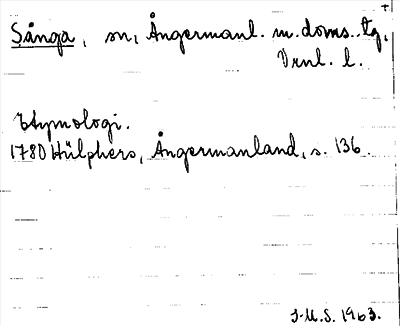 +
Sånga, sn, Ångermanl. m. doms. tg,
Vrnl. l.
Etymologi.
1780 Hülphers, Ångermanland, s. 136.
J.M.S. 1963.